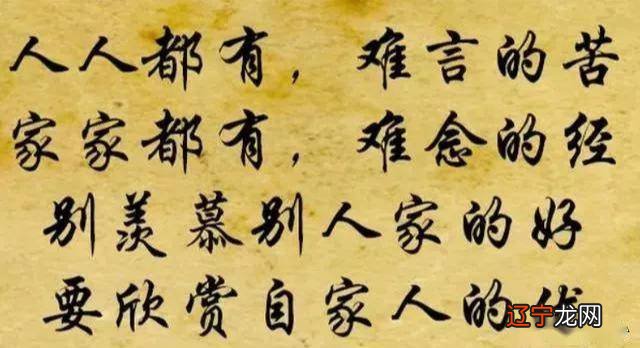 人人都有，难言的苦
家家都有，难念的经
别羡慕别人家的好
要欣赏自家人的
辽宁龙网